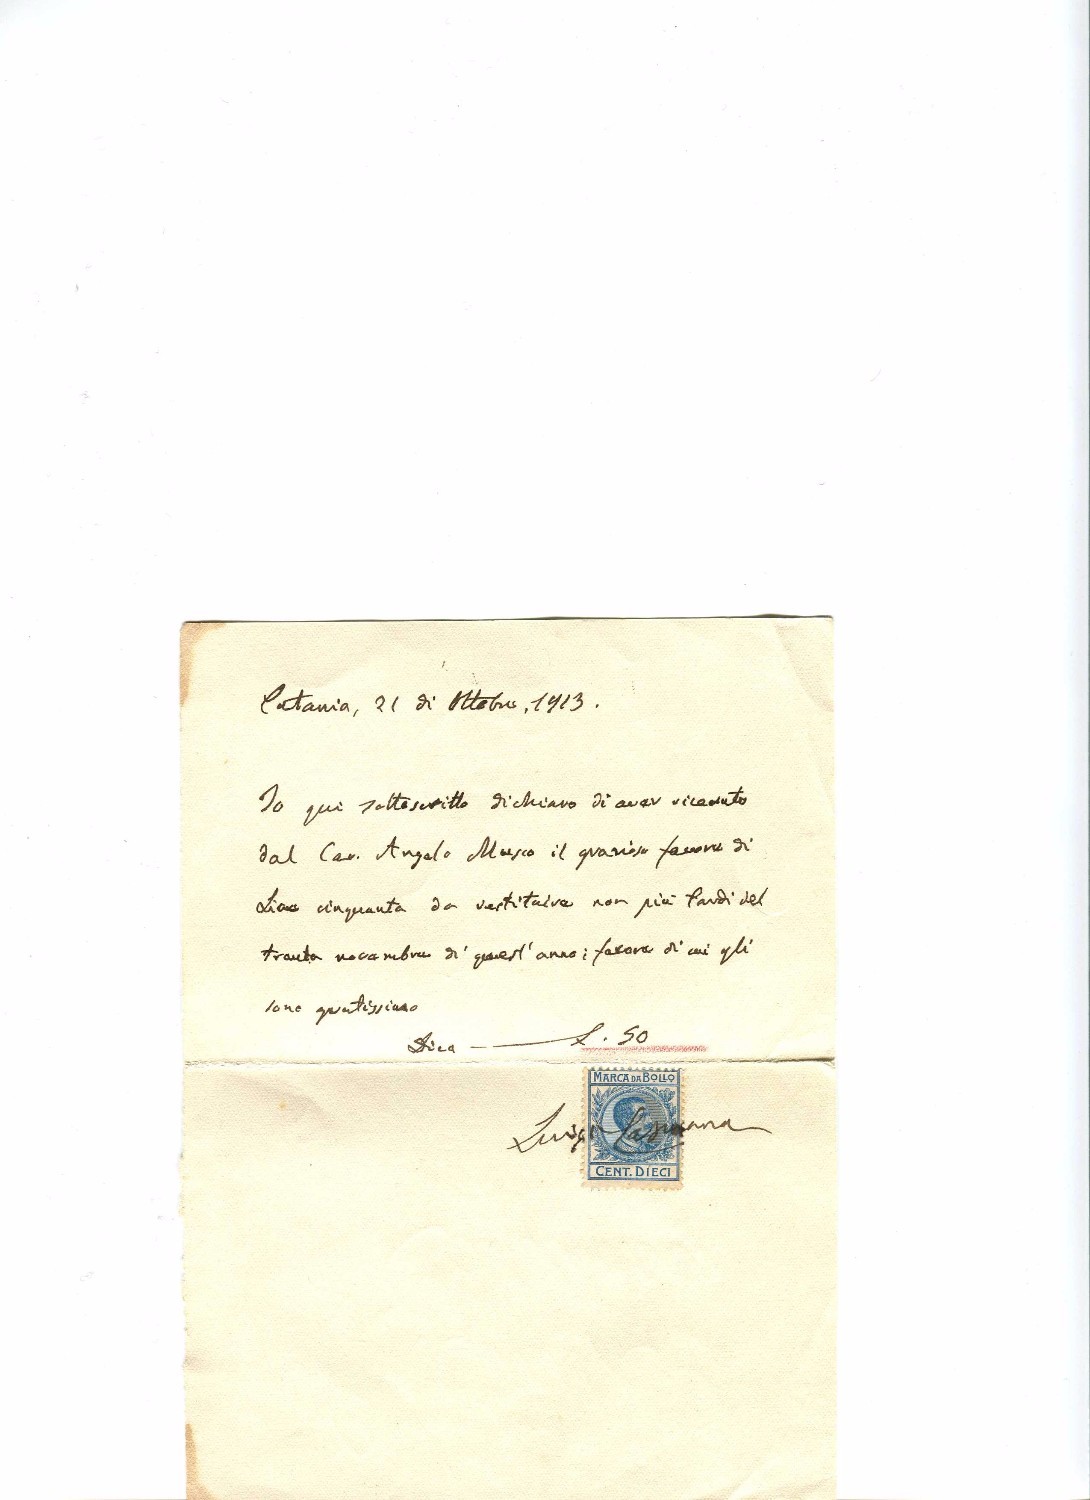 Catania, 21 di Ottobre, 1913.
Io qui sottoscritto dichiaro di aver ricevuto
dal Cav. Angelo Musco il grazioso favore di
Lire cinquanta da restituire non più tardi del
trenta novembre di quest'anno; favore di cui gli
sono gratissimo
Dico — L. 50
MARCA DA BOLLO
Luigi Capuana
CENT. DIECI